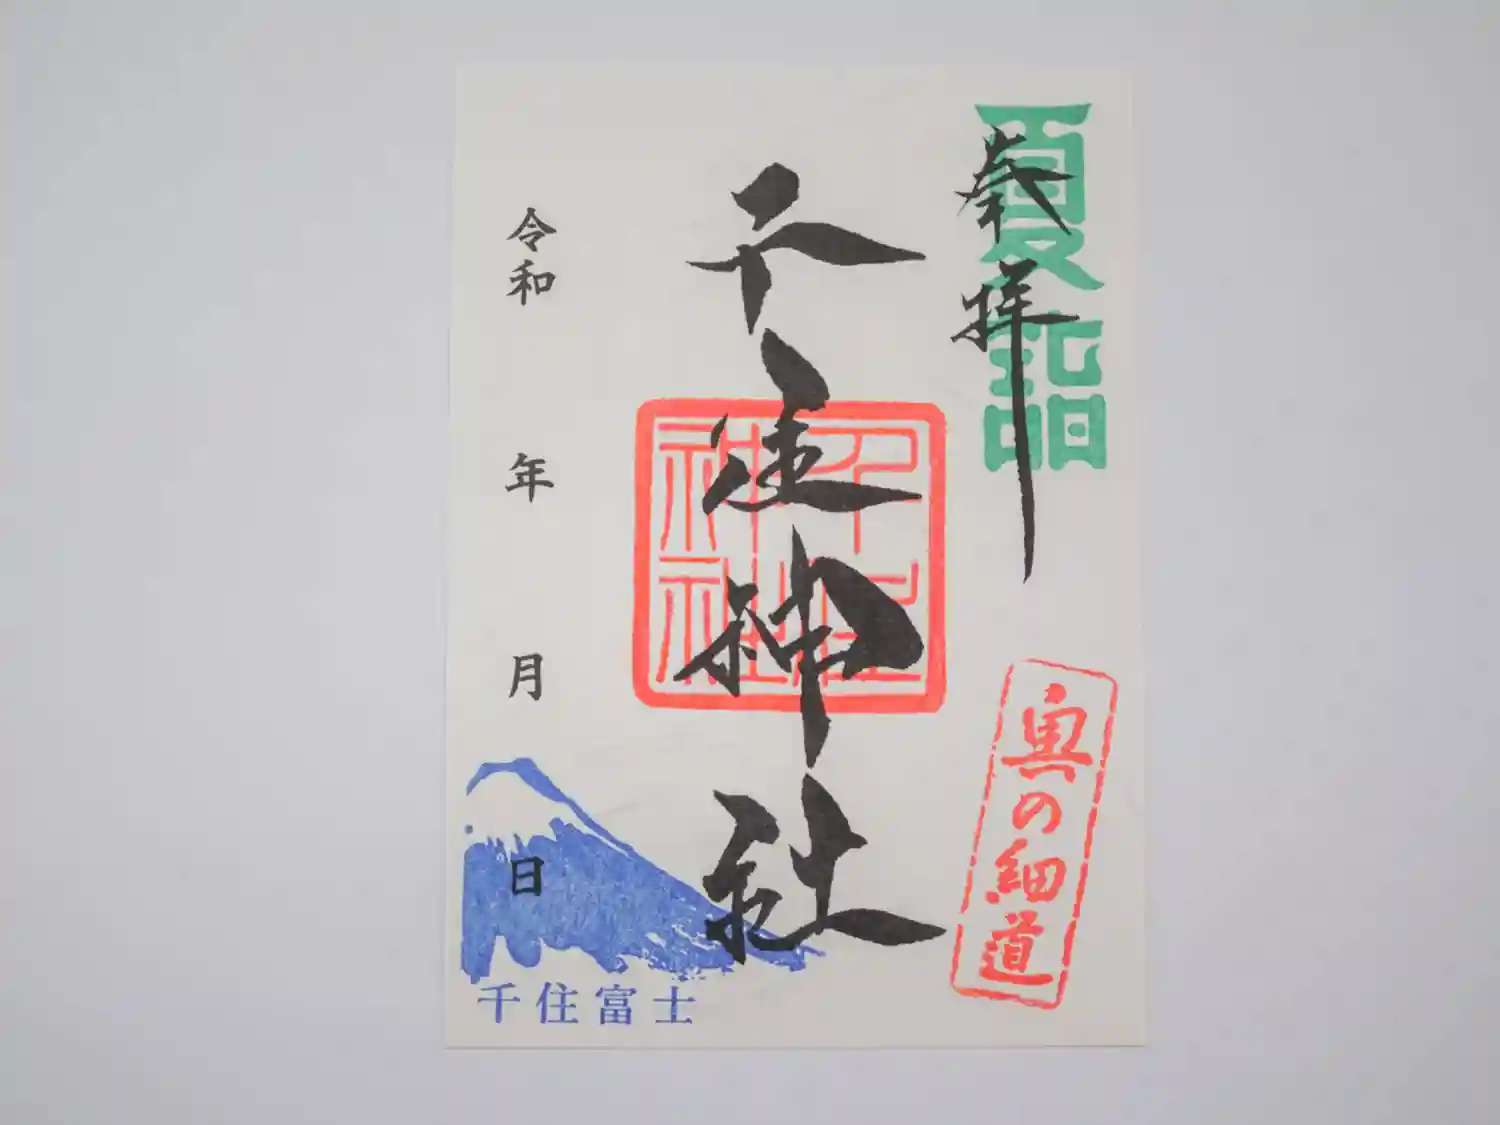 夏詣
奉拝
奥の細道
千住神社
千住神社
令和 年 月 日
千住富士